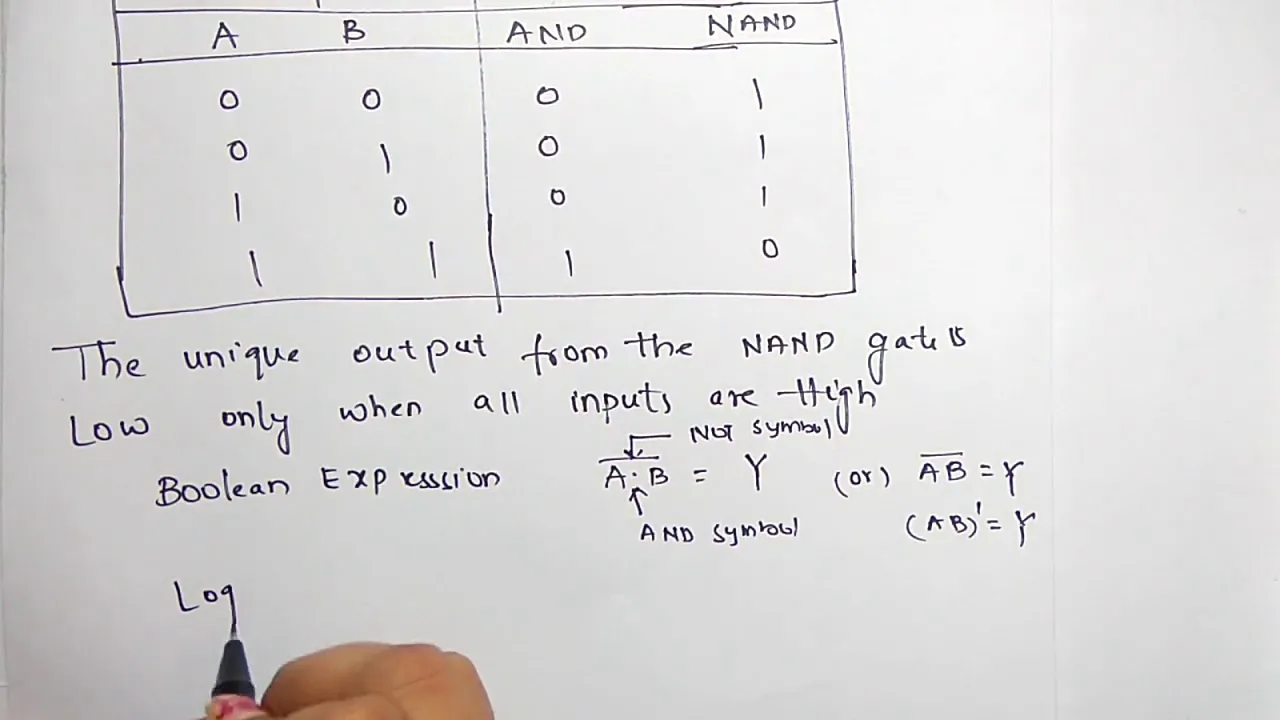 A B AND NAND
0 0 0 1
0 1 0 1
1 0 0 1
1 1 1 0
The unique output from the NAND gate is
Low only when all inputs are High
NOT symbol
Boolean Expresssion A·B = Y (or) AB = Y
AND symbol (AB)' = Y
Log